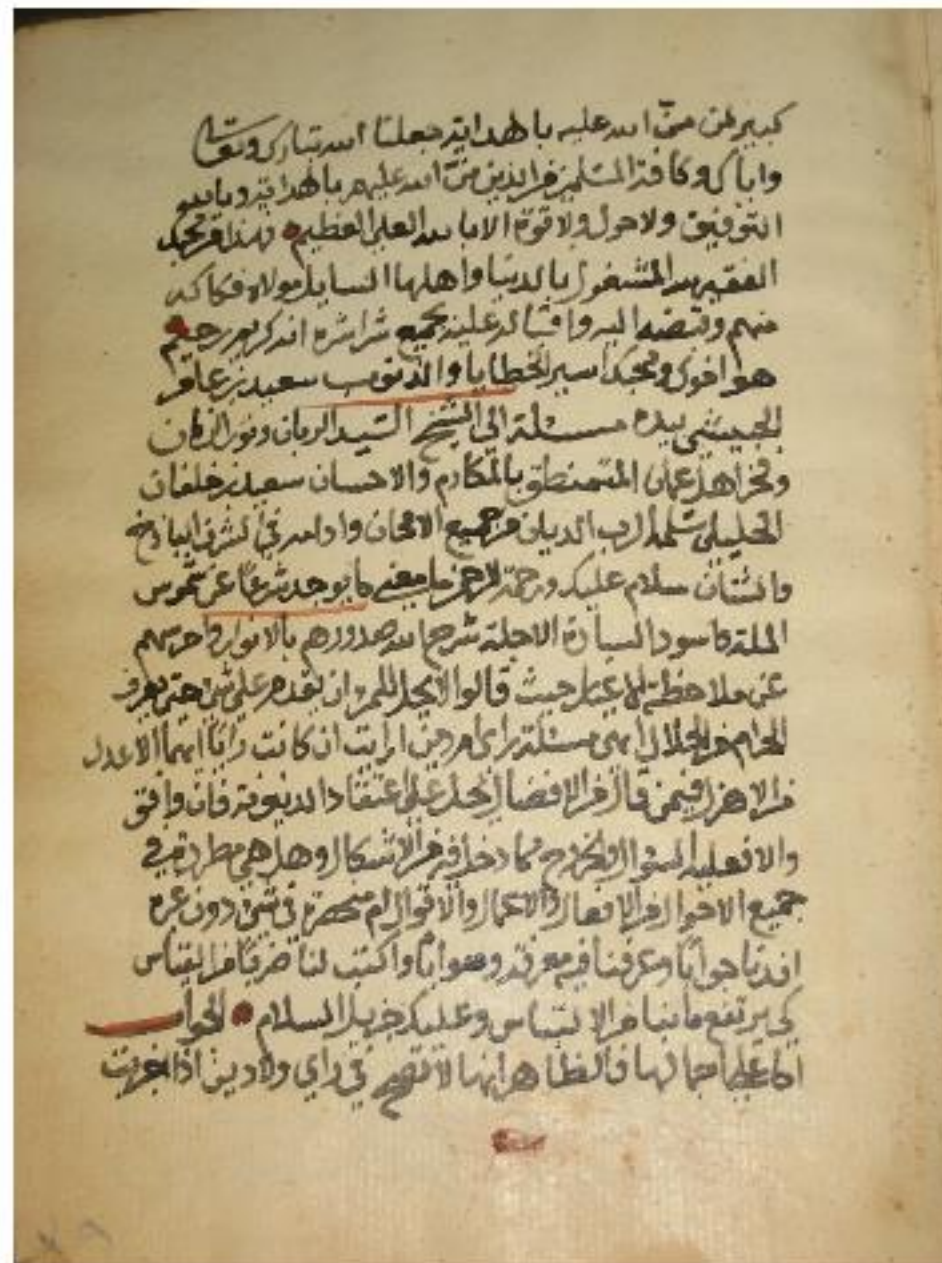 كبير لمن منّ الله عليه بالهداية جعلنا الله تبارك وتعالى
واياك وكافة المسلمين من الذين منّ الله عليهم بالهداية وبالله
التوفيق ولا حول ولا قوة الا بالله العلي العظيم فهذا من محبك
الفقير لله المشغول بالدنيا واهلها السايل مولاه فكاكه
منهم وقبضه اليه واقباله عليه بجميع شراشره انه كريم رحيم
هو اخوك ومحبك اسير الخطايا والذنوب سعيد بن عامر
الحبيشي بيده مسئلة الي الشيخ السيد الرباني ونور الزمان
وفخر اهل عمان المتمنطق بالمكارم والاحسان سعيد بن خلفان
الخليلي سلمه الرب الديان من جميع الامحان وادامه في الشرف الباذخ
والشان سلام عليك ورحمة الرحمن ما معنى ما يوجد شرعًا عن شموس
الملة واسود السادة الاجلة شرح الله صدورهم بالانوار وحرسهم
عن ملاحظة الاغيار حيث قالوا لا يحل للمرء ان يقدم على شيء حتى يعرف
الحرام من الحلال اهي مسئلة راي ام دين ارايت ان كانت رايًا ايهما الاعدل
من الاهزل فيمن قال من الافضال لحل على اعتقاد الدينونة فان وافق
والا فعليه السؤال والخروج مما دخل فيه من الاشكال وهل هي مطردة في
جميع الاحوال من الافعال والاعمال والاقوال ام منحصرة في شيء دون غيره
افدنا جوابًا وعرفنا فيه معرفة وصوابًا واكتب لنا ضربًا من القياس
كي يرتفع ما بنا من الالتباس وعليك جزيل السلام الجواب
اما على اجمالها فالظاهر انها لا تصح في راي ولا دين اذا جريت